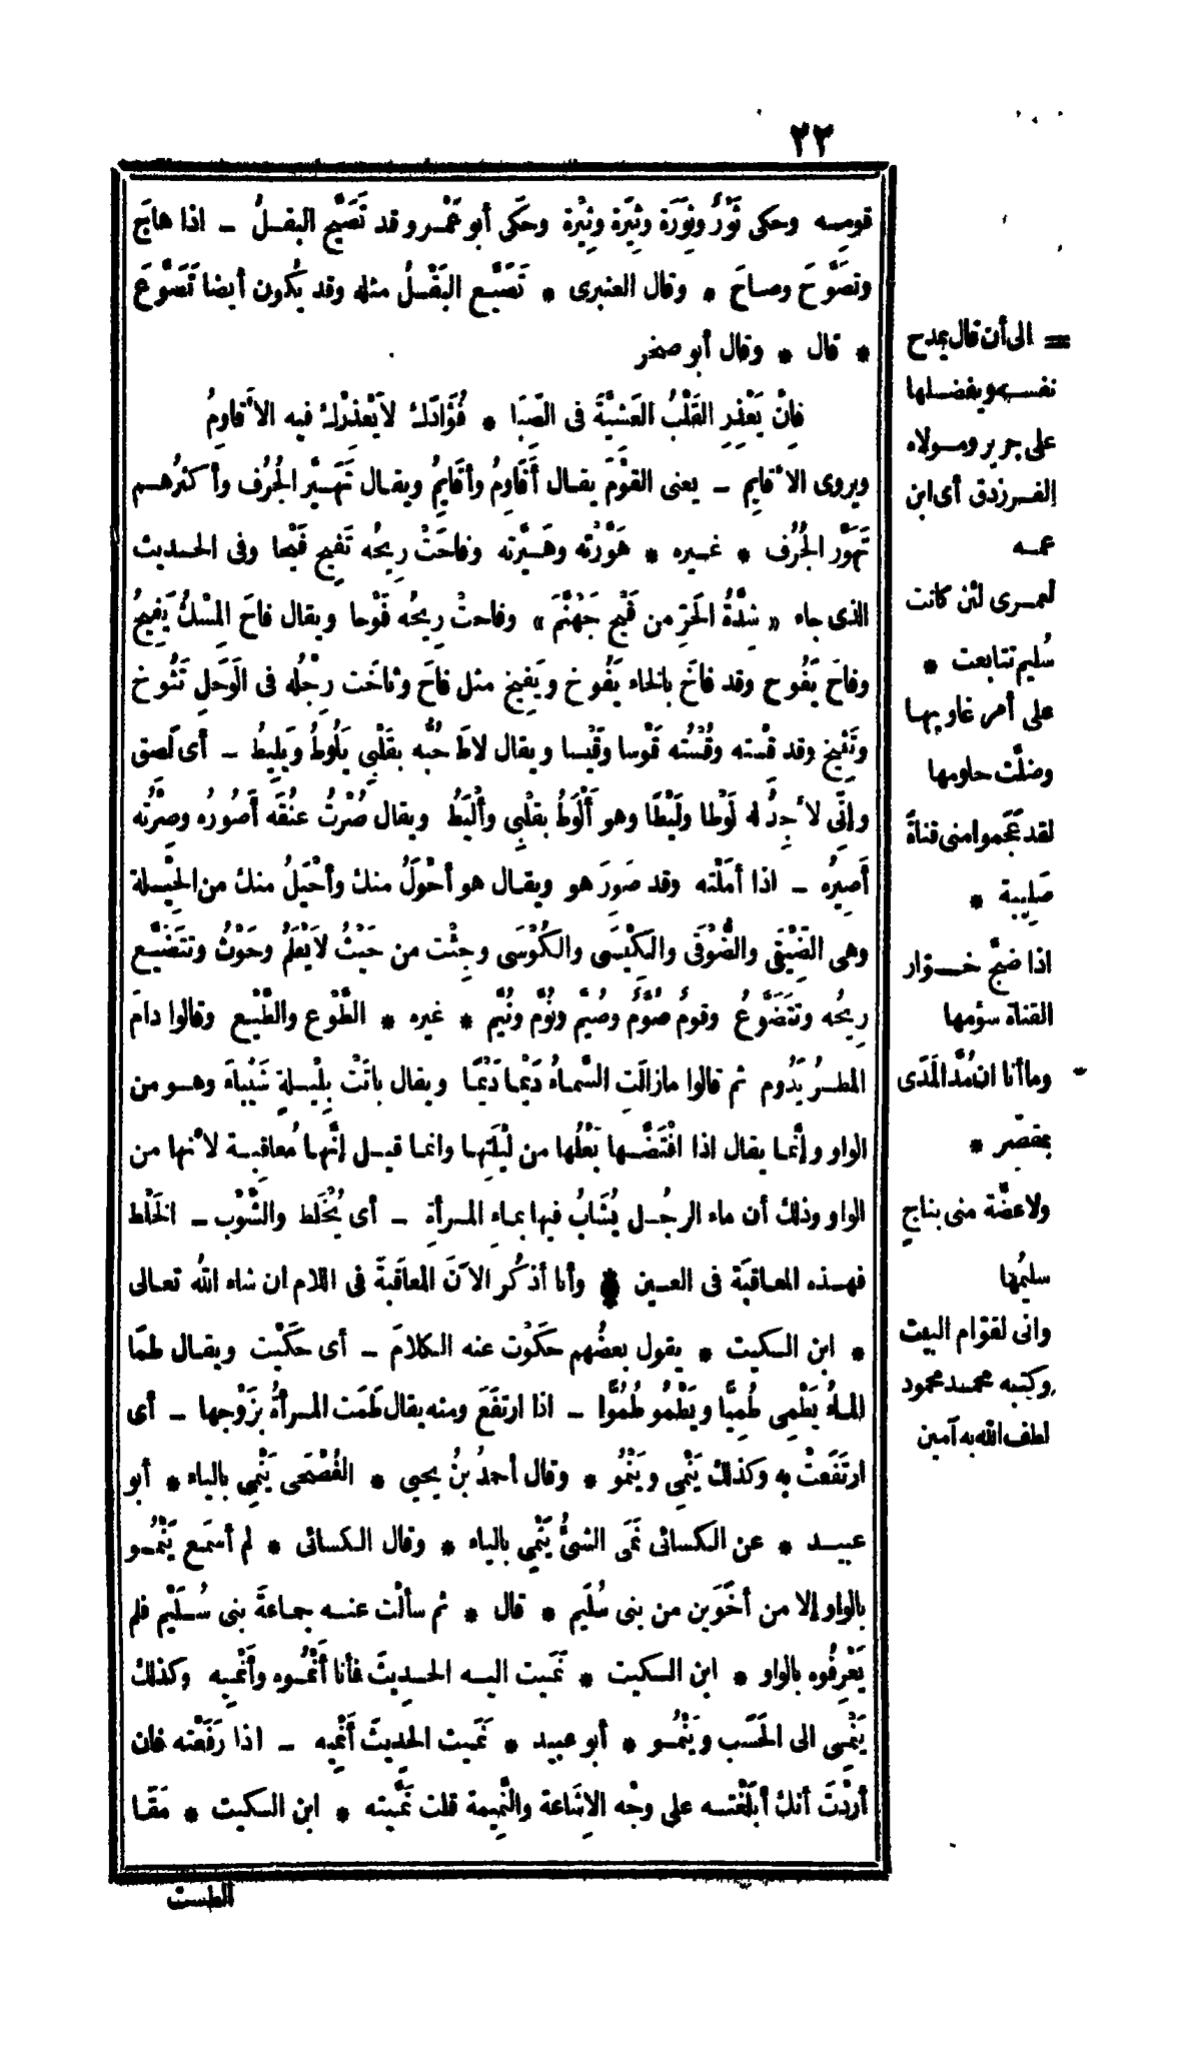 ٢٢
قومِسه وحكى ثَوْرٌ وثِوَرَة وثِيَرَة وثِيْرة وحَكَى أبو عَمْـرو قد تَصَيَّح البقـلُ ـ اذا هاجَ
وتَصَوَّحَ وصاحَ * وقال العنبرى * تَصَيَّـع البَقْـلُ مثله وقد يكُون أيضا تَصَوَّعَ
* قال * وقال أبو صخر
فانْ يَعْذِرِ القَلْبُ العَشيَّةَ فى الصِّبَا * فُؤَادَك لايَعْذِرْك فيه الأَقاوِمُ
ويروى الأَقايِم ـ يعنى القوْمَ يقـال أَقَاوِمُ وأَقَايِمُ ويقـال تَهَـيَّر الجُرُف وأكثرُهـم
تَهَوَّر الجُرُف * غـيره * هَوَّرْته وهَـيَّرته وفاحَتْ رِيحُه تَفِيح فَيْحا وفى الحـديث
الذى جاء « شِدَّةُ الحَرِّ من فَيْح جَهَنَّمَ » وفاحتْ رِيحُه فَوْحا ويقال فاحَ المِسْكُ يَفِيحُ
وفاحَ يَفُوح وقد فاخَ بالخاء يَفُوخ ويَفِيخ مثل فاحَ وثاخَت رِجْلُه فى الوَحَلِ تَثُوخ
وتَثِيخ وقد قِسْته وقُسْتُه قَوْسا وقَيْسا ويقال لاطَ حُبُّه بقَلْبِى يَلُوطُ ويَلِيطُ ـ أى لَصق
وإنِّى لأَجِدُ له لَوْطا ولَيْطًا وهو أَلْوَطُ بقلْبِى وأَلْيَطُ ويقال صُرْتُ عنُقَه أَصُورُه وصِرْتُه
أَصِيرُه ـ اذا أمَلْته وقد صَوِرَ هو ويقـال هو أحْوَلُ منك وأحْيَلُ منك من الحِيْـلة
وهى الضِيْقَى والضُّوْقَى والكِيْسَى والكُوْسَى وجِئْت من حَيْثُ لا يَعْلَمُ وحَوْثُ وتتَضَيَّـع
رِيحُه وتتَضَوَّعُ وقومٌ صُوَّمٌ وصُيَّم ونُوَّم ونُيَّم * غيره * الطَّوْع والطَّيْـع وقالوا دامَ
المطـرُ يَدُوم ثم قالوا مازالَتِ السَّمـاءُ دَيْمًا دَيْمًا ويقال باتَتْ بِلَيْـلةِ شَيْباءَ وهـو من
الواو وإنَّمـا يقال اذا افْتَضَّـها بَعْلُها من لَيْلَتِهـا وانما قيـل إنَّهـا مُعاقِبـة لأنها من
الواو وذلك أن ماء الرجُـل يُشَابُ فيها بمـاء المـرأةِ ـ أى يُخْلَط والشَّوْب ـ الخَلْط
فهـذه المعـاقبَة فى العـين * وأنا أذكُر الآنَ المعاقَبةَ فى اللام ان شاء الله تعـالى
* ابن السكيت * يقول بعضُهم حكَوْت عنه الكلامَ ـ أى حكَيْت ويقـال طمَا
المـاءُ يَطْمِى طُمِيًّا ويَطْمُو طُمُوًّا ـ اذا ارتفَعَ ومنه يقال طَمَت المـرأةُ بزَوْجها ـ أى
ارتَفَعتْ به وكذلك يَنْمِى ويَنْمُو * وقال أحمدُ بنُ يحيى * الفُصْحَى يَنْمِى بالياء * أبو
عبيـد * عن الكسائى نَمَى الشئُ يَنْمِى بالياء * وقال الكسائى * لم أسمَع يَنْمُـو
بالواو إلا من أخَوَين من بنى سُلَيم * قال * ثم سألْت عنـه جماعةَ بنى سُـلَيْم فلم
يَعْرِفُوه بالواو * ابن السكيت * نَمَيت اليـه الحـدِيثَ فأنا أَنْمُـوه وأَنْمِيـه وكذلك
يَنْمِـى الى الحَسَب ويَنْمُـو * أبو عبيد * نَمَيت الحدِيثَ أَنْمِيه ـ اذا رَفَعْته فان
أردْتَ أنك أبلَغْتـه على وجْه الاِشاعة والنَّمِيمة قلت نَمَّيته * ابن السكيت * مَقَـا
الطست
= الى أن قال يمدح
نفسـه ويفضـلها
على جرير ومـولاه
الفـرزدق أى ابن
عمـه
لعمـرى لئن كانت
سُليم تتابعت *
على أمر غاويهـا
وضلَّت حلومها
لقد عَجَموا منى قناةً
صَلِيبة *
اذا ضجَّ خـوّار
القناة سؤمها
وما أنا ان مُدَّ المَدَى
بمقصِّر *
ولا عضَّة منى بناجٍ
سليمُها
وانى لقوّام البيت
وكتبه محمـد محمود
لطف الله به آمين